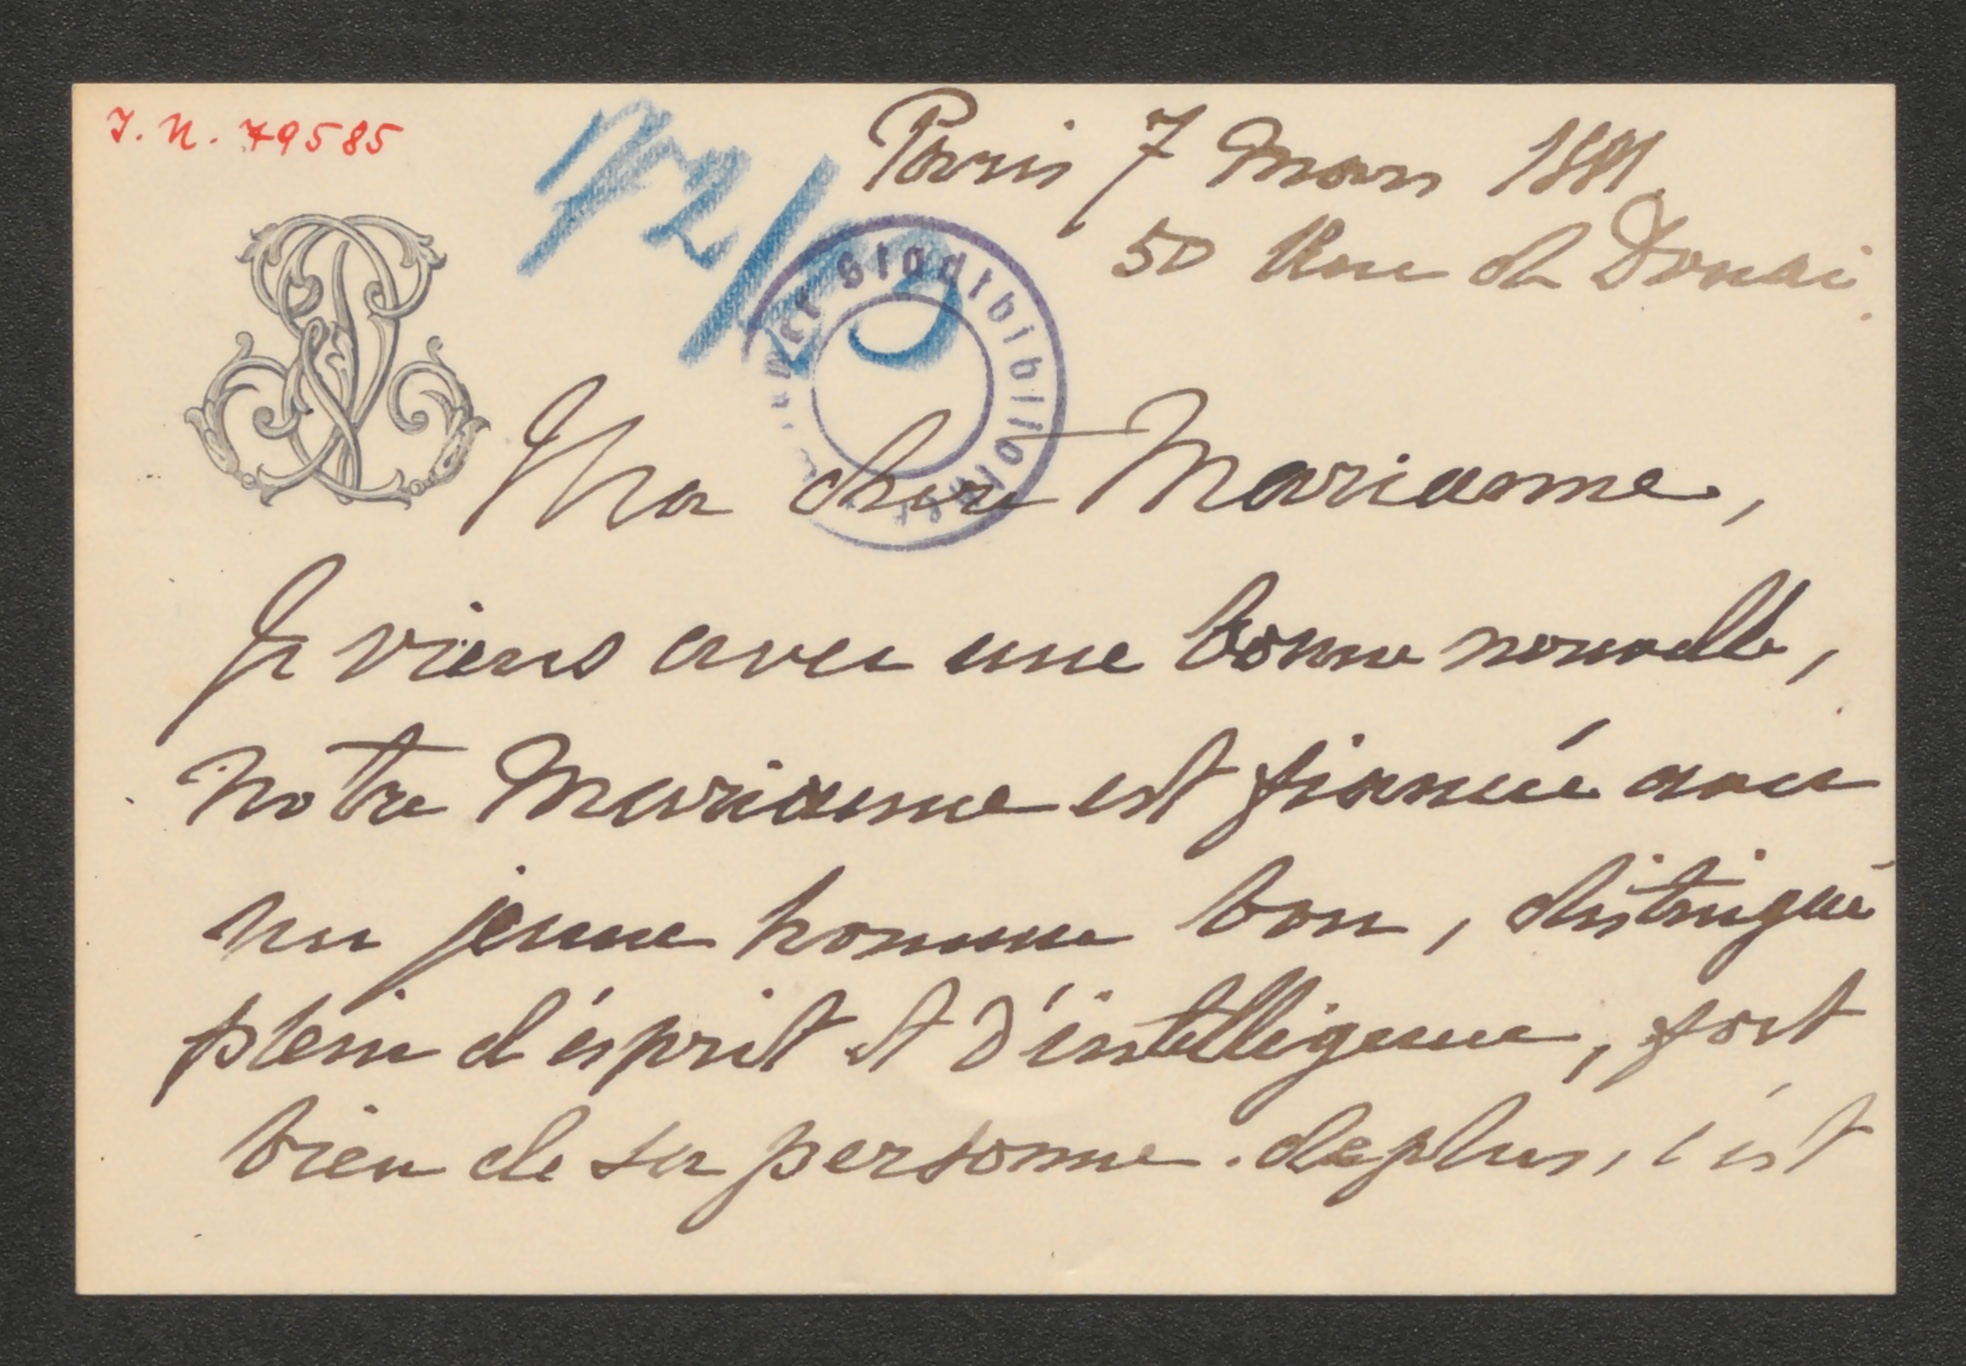 J. N. 79585
72/29
Paris 7 Mars 1881
50 Rue de Douai.
Wiener Stadtbibliothek
Ma chere Marianne,
Je viens avec une bonne nouvelle,
notre Marianne est fiancée avec
un jeune homme bon, distingué
plein d'ésprit et d'intelligence, fort
bien de sa personne. de plus, c'ést